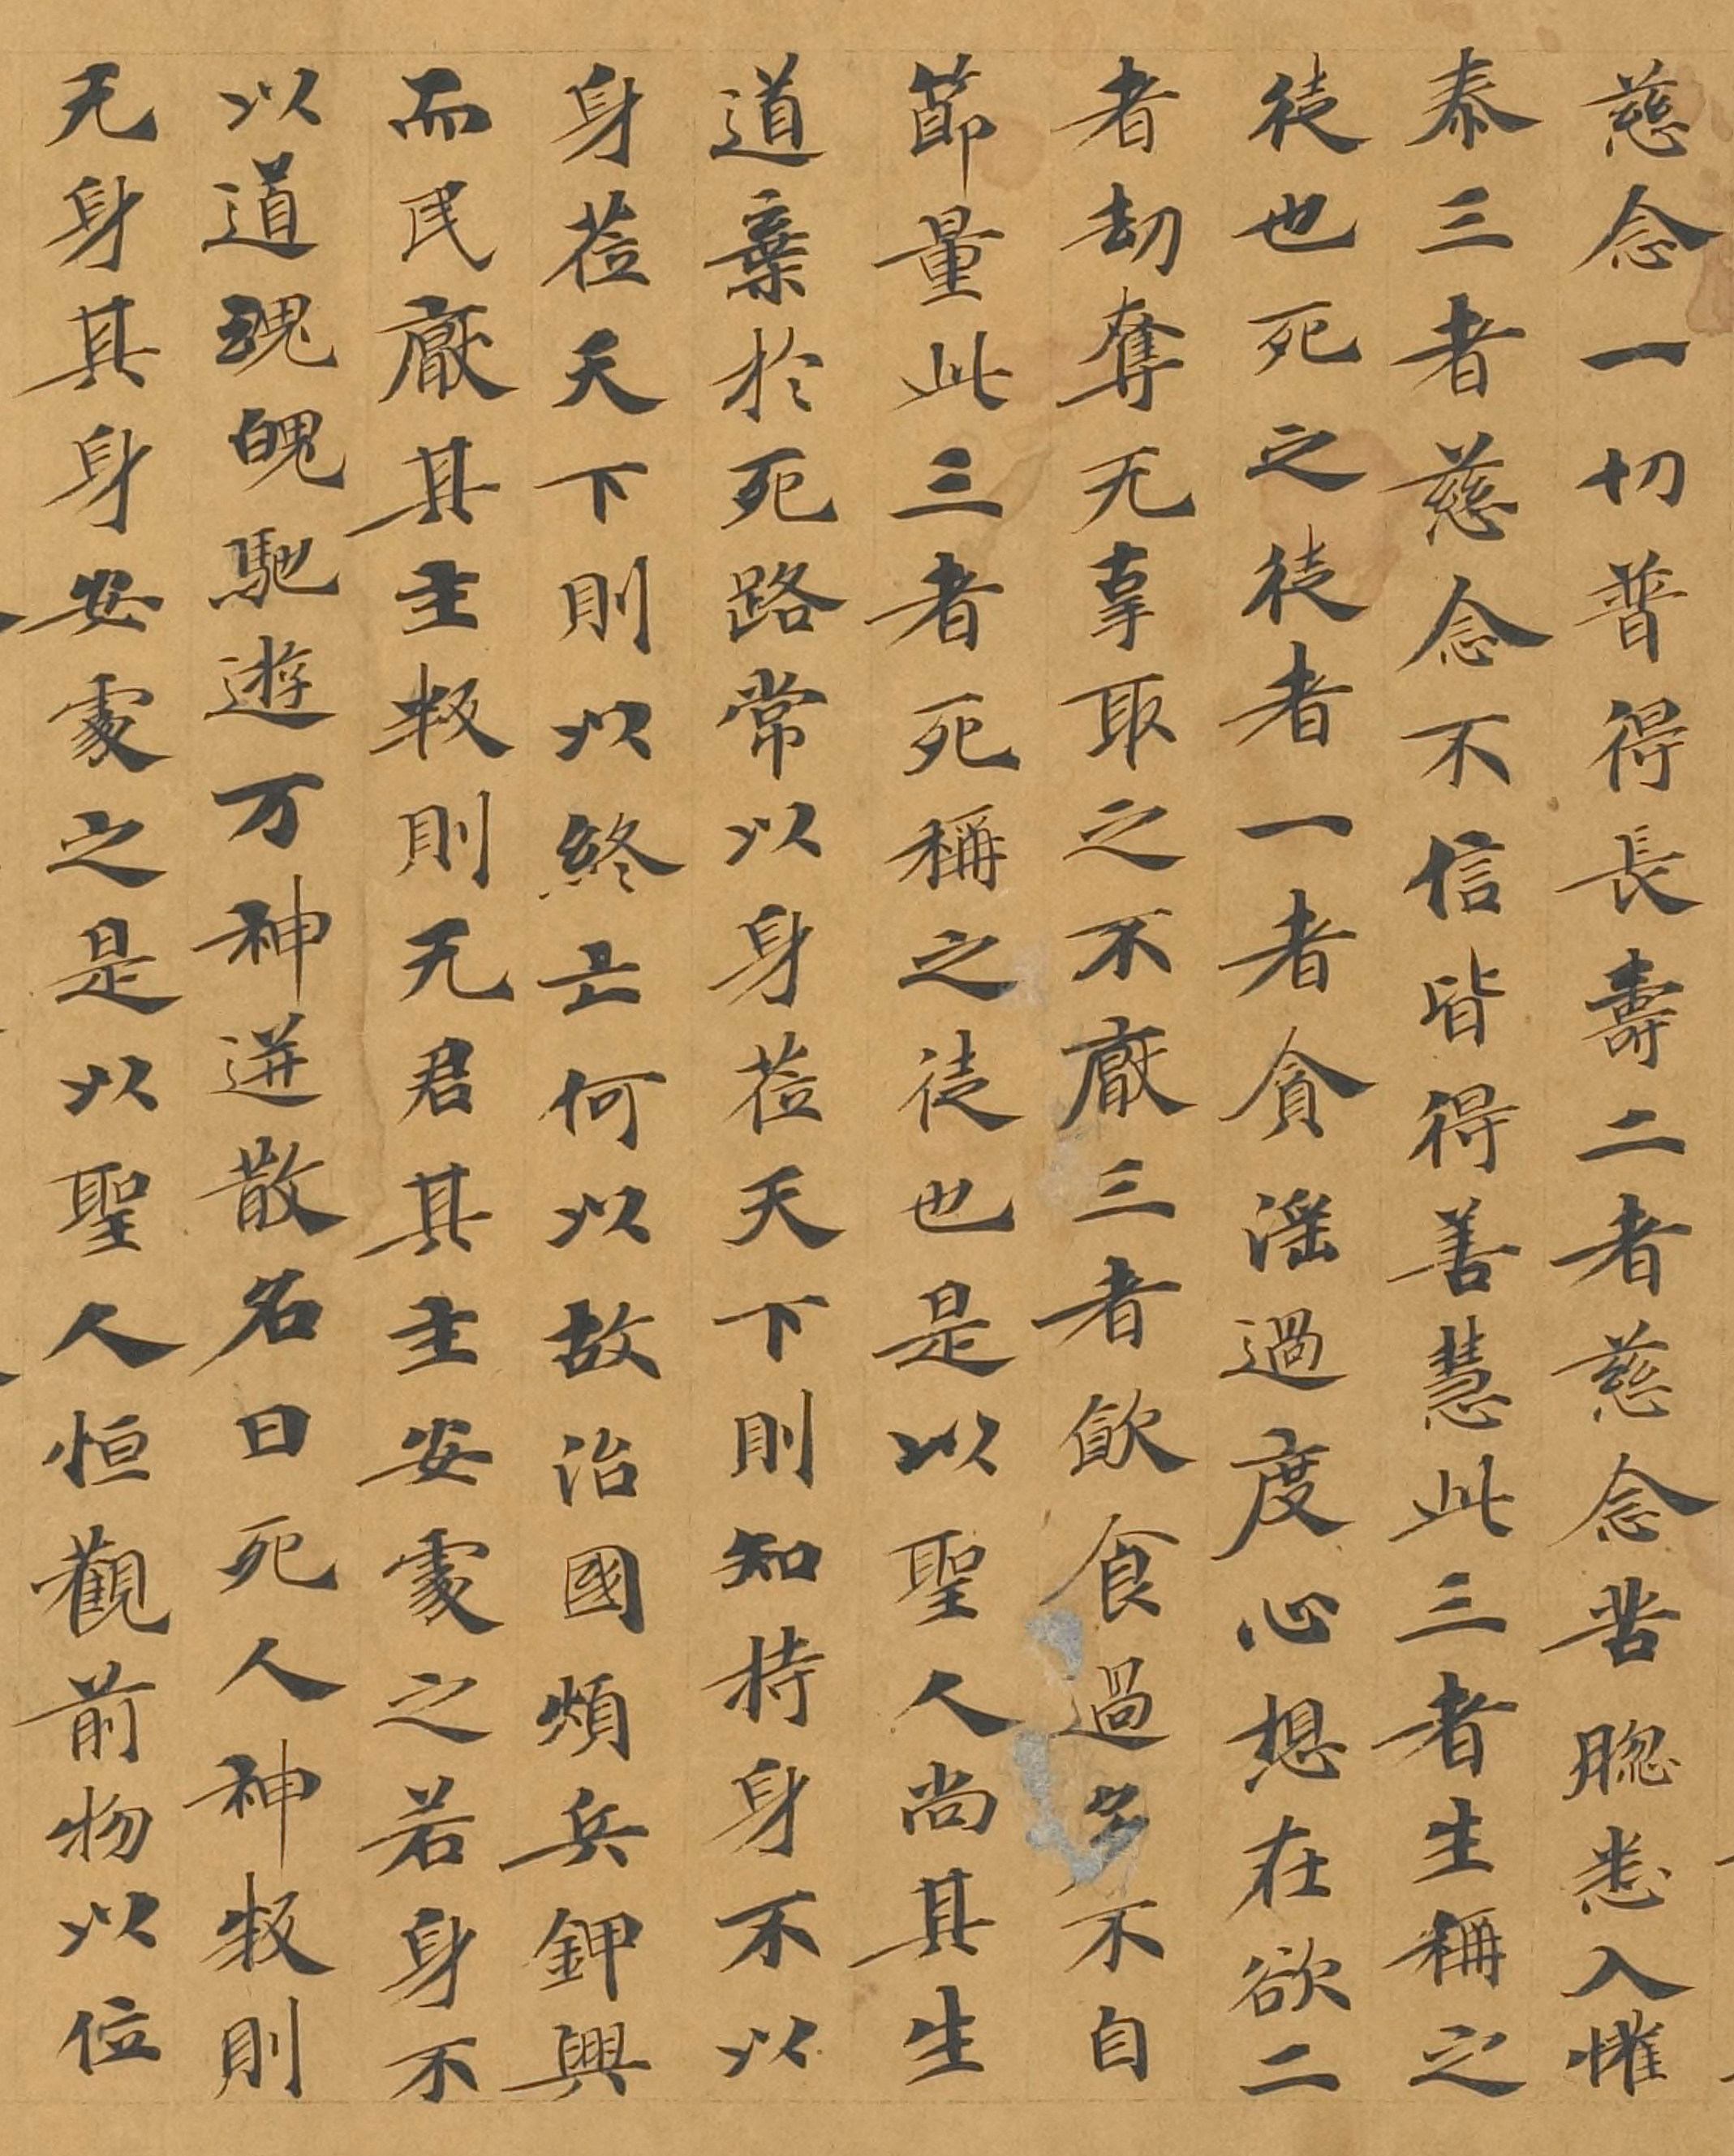 慈念一切普得長壽二者慈念苦聡悉入懽
泰三者慈念不信皆得善慧此三者生稱之
徒也死之徒者一者貪滛過度心想在欲二
者劫奪无辜取之不厭三者飲食過多不自
節量此三者死稱之徒也是以聖人尚其生
道棄於死路常以身莅天下則知持身不以
身莅天下則以終亡何以故治國煩兵鉀興
而民厭其主叛則无君其主安處之若身不
以道魂魄馳遊万神迸散名曰死人神叛則
无身其身安處之是以聖人恒觀前物以位